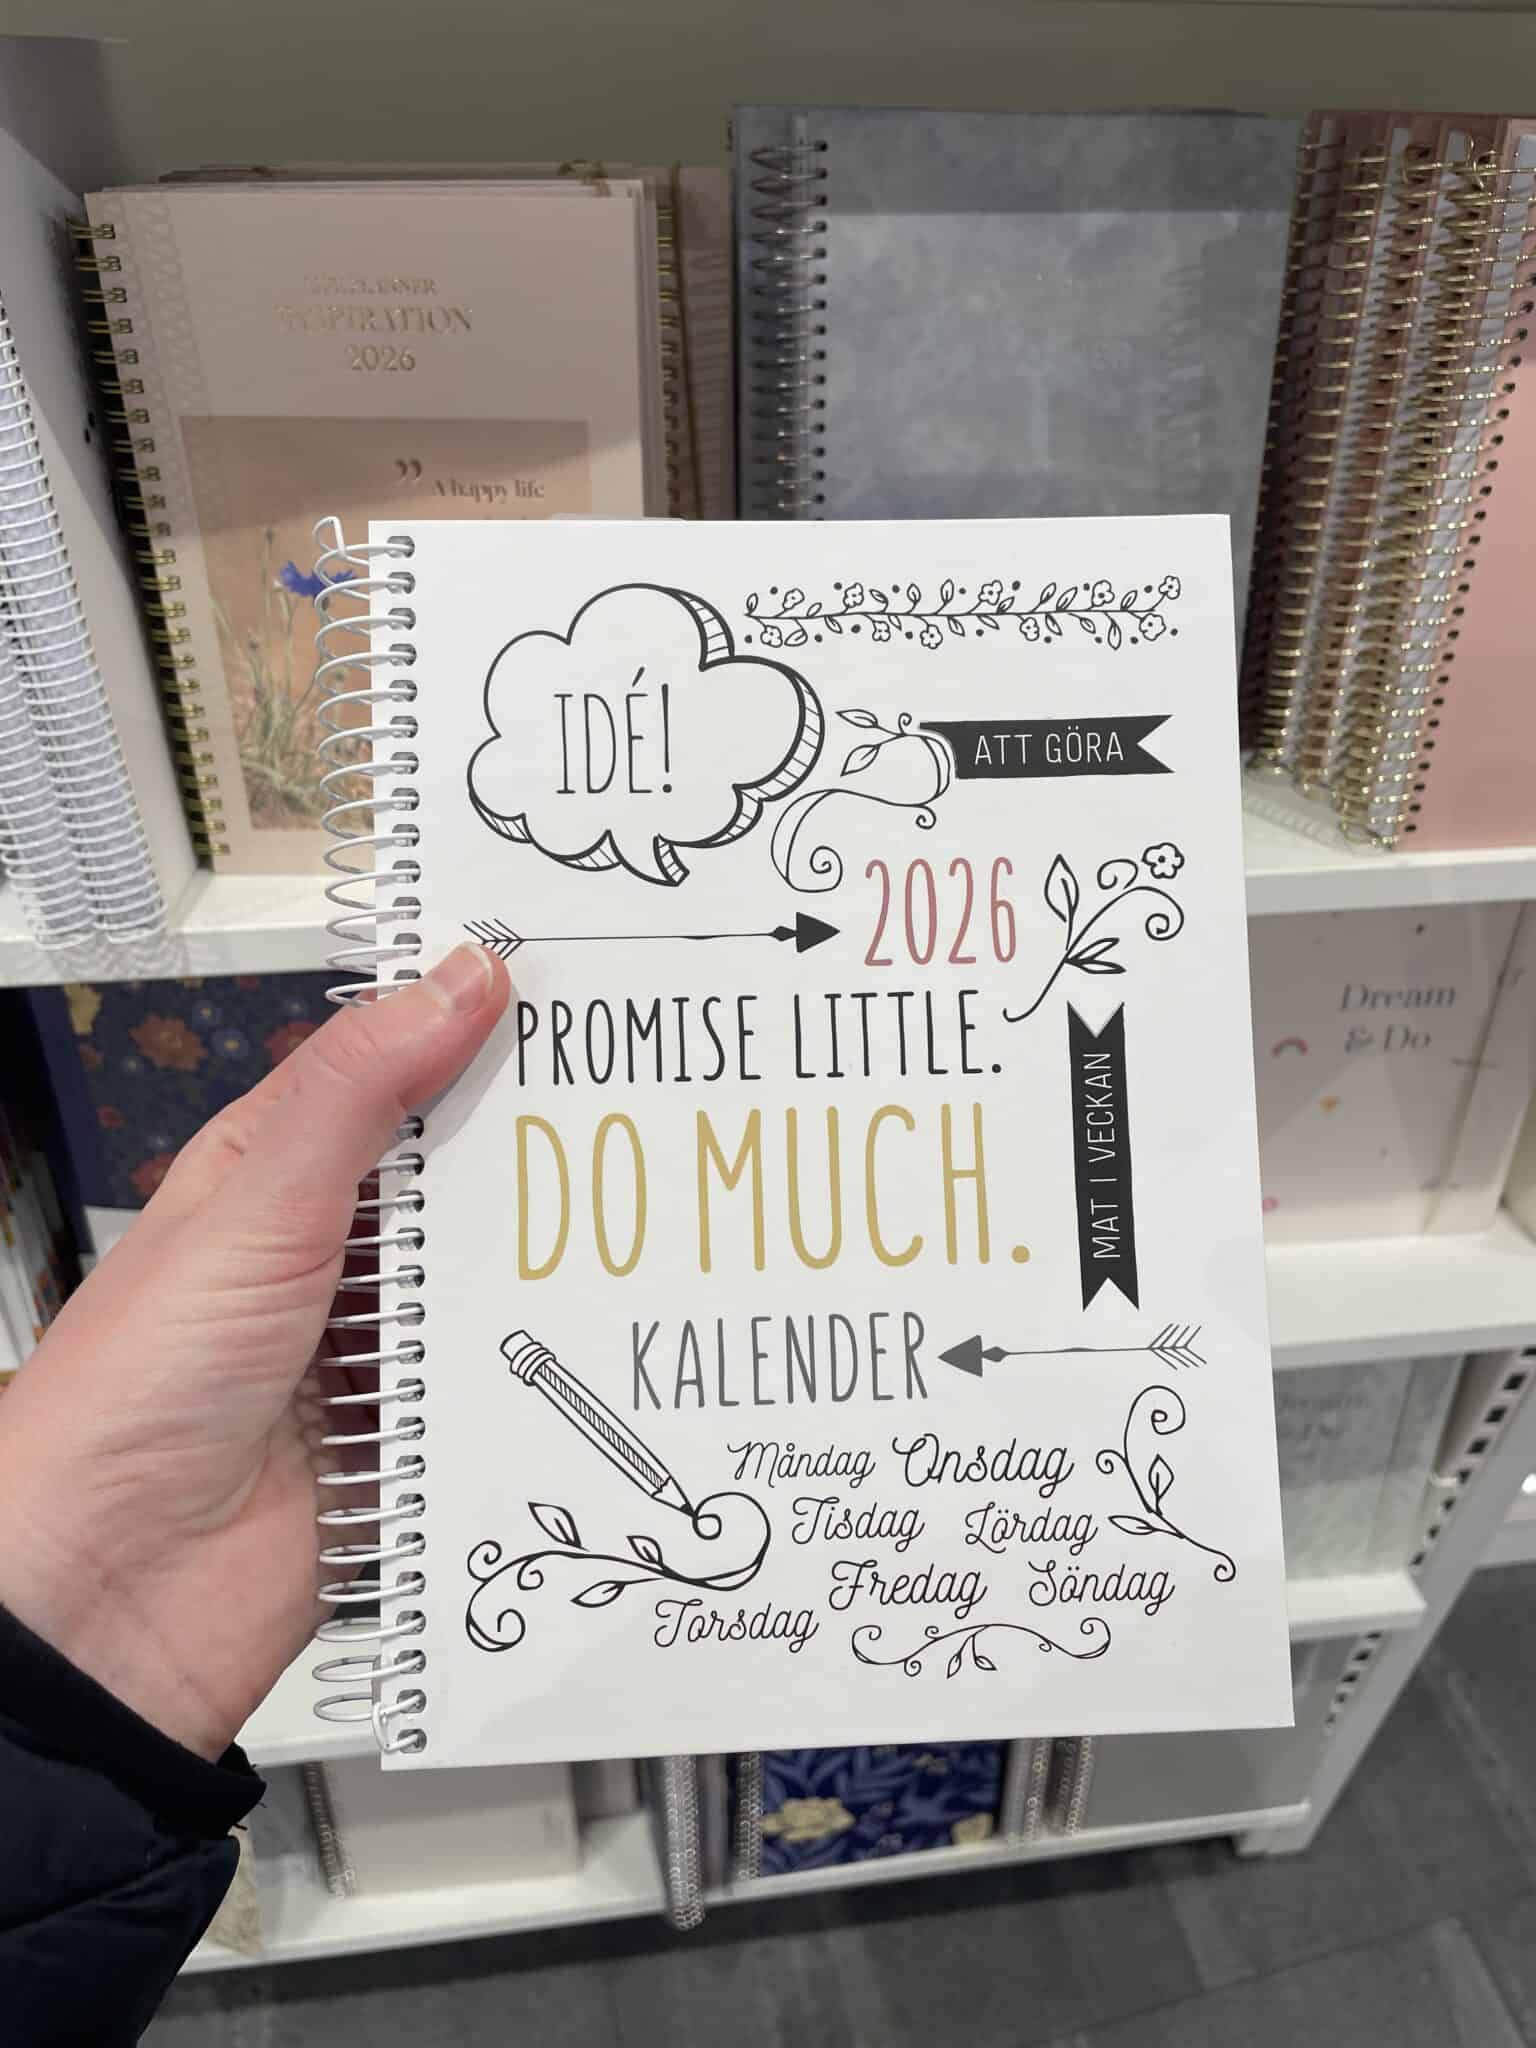 INSPIRATION
2026
” A happy life
IDÉ!
ATT GÖRA
2026
PROMISE LITTLE.
DO MUCH.
MAT I VECKAN
KALENDER
Måndag Onsdag
Tisdag Lördag
Fredag Söndag
Torsdag
Dream
& Do